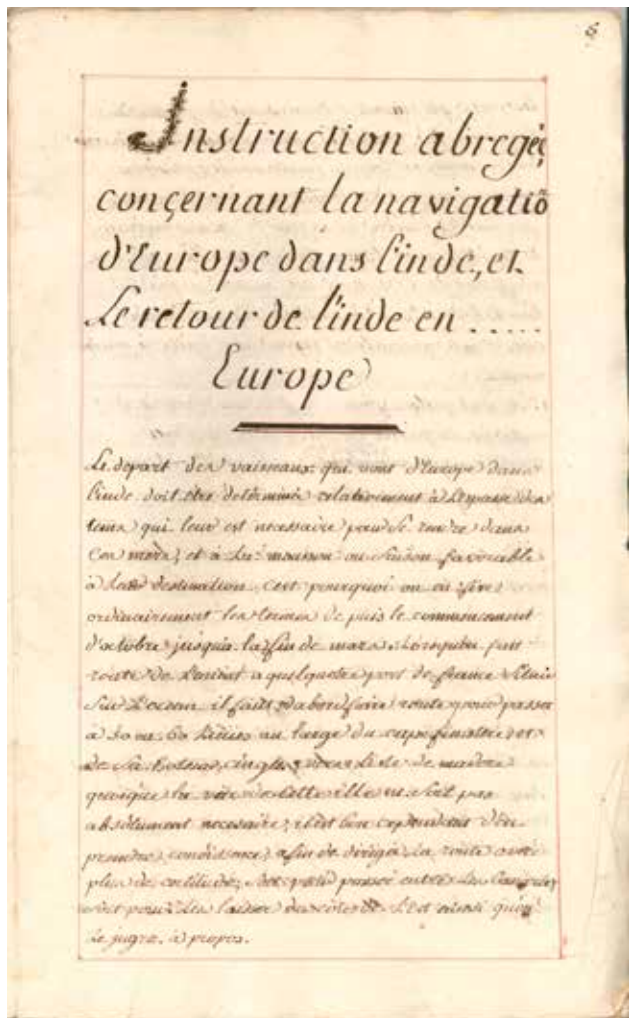 6
Instruction abregée
conçernant la navigatiõ
d'Europe dans l'inde, et
Le retour de l'inde en .....
Europe
Le depart des vaisseaux qui vont d'Europe dans
l'inde doit être determiné relativement à L'espace des
tems qui leur est necessaire pour se rendre dans
Ces mers, et à la mousson ou saison favorable
à destination, c'est pourquoi on en fixe
ordinairement les termes depuis le commencement
d'octobre jusqu'a la fin de mars. Lorsqu'on fait
route de Lorient a quelqu'autre port de france Situé
Sur L'ocean il faut d'abord faire route pour passer
à 50 ou 60 Lieües au large du cap finistere, et
de là vers L'isle de madere
quoique la vüe de cette isle ne soit pas
absolument necessaire, il est bon cependant d'en
prendre connoissance, afin de diriger la route avec
plus de certitude, passer entre les Canaries
soit pour les laisser du côté de L'Est ainsi qu'on
le jugera à propos.